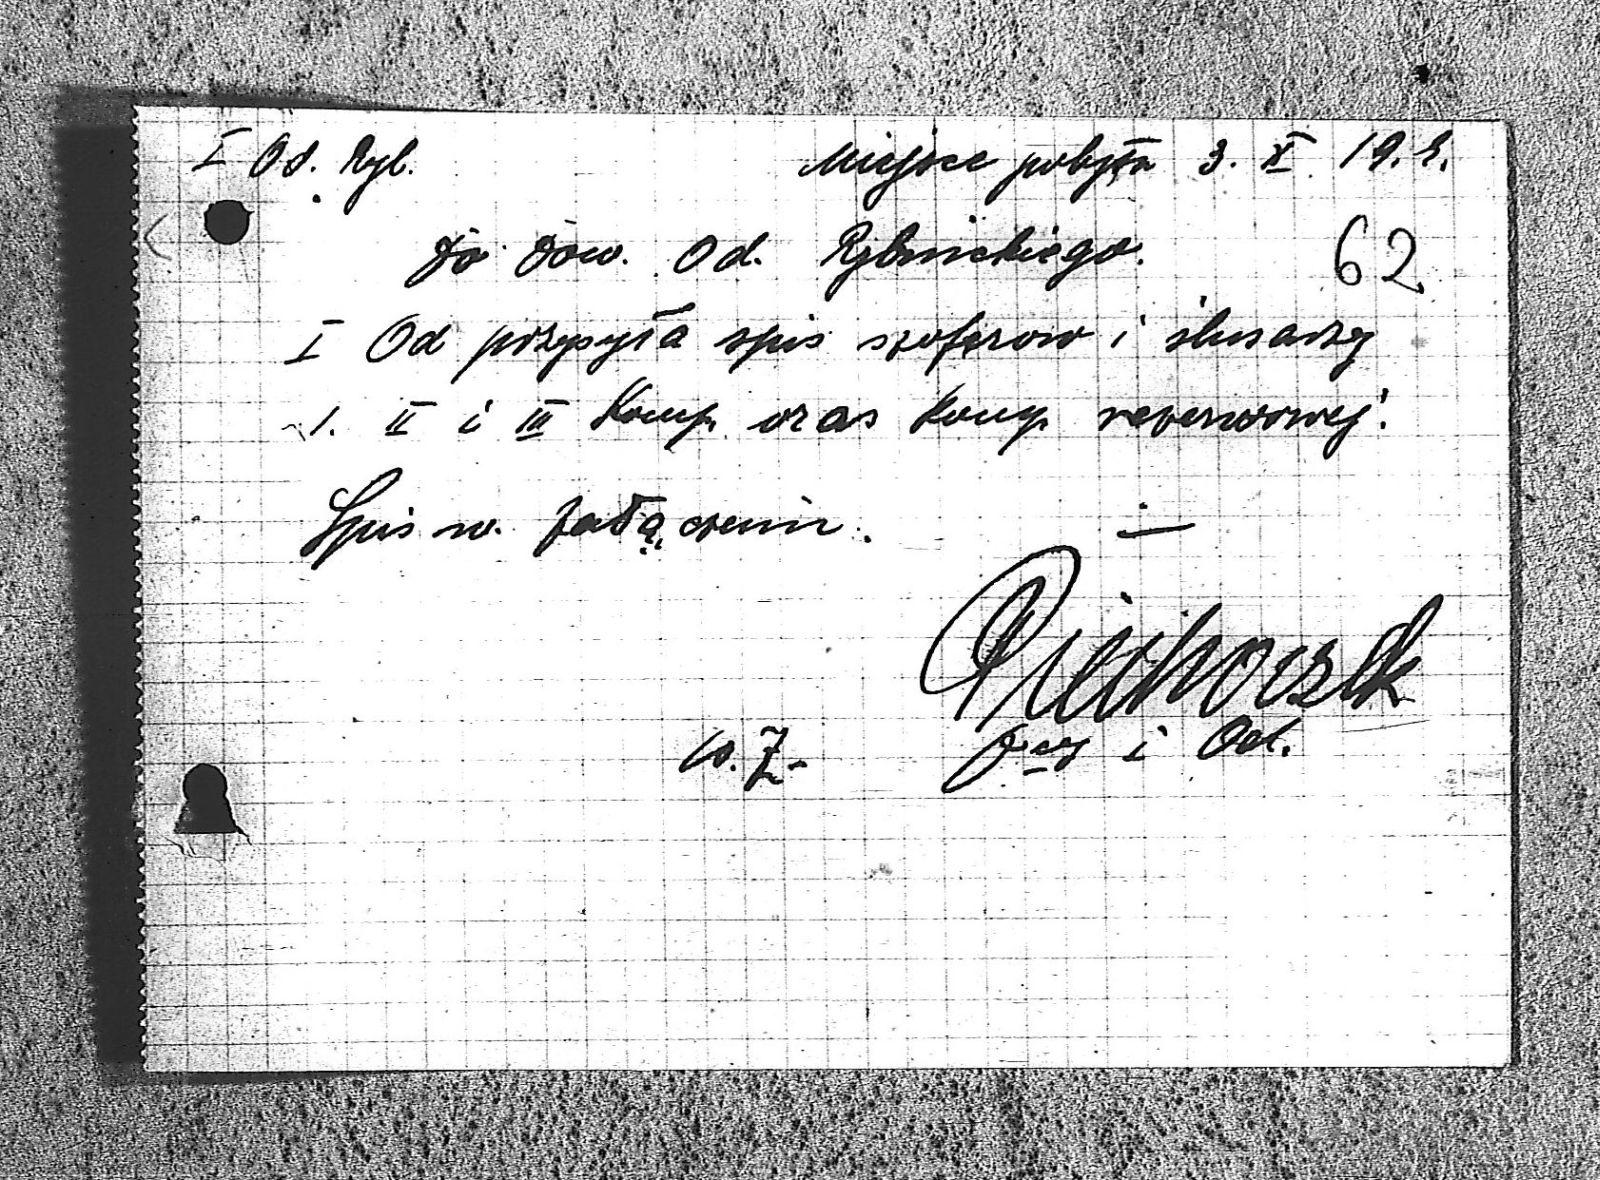 I Od. Ryb. Miejsce pobytu 3. X 19. r.
Do Dow. Od. Rybnickiego. 62
I Od przesyła spis szoferow i ślusarzy
1. II i III Komp. oraz komp rezerwowej.
Spis w. załączeniu.
i Od.